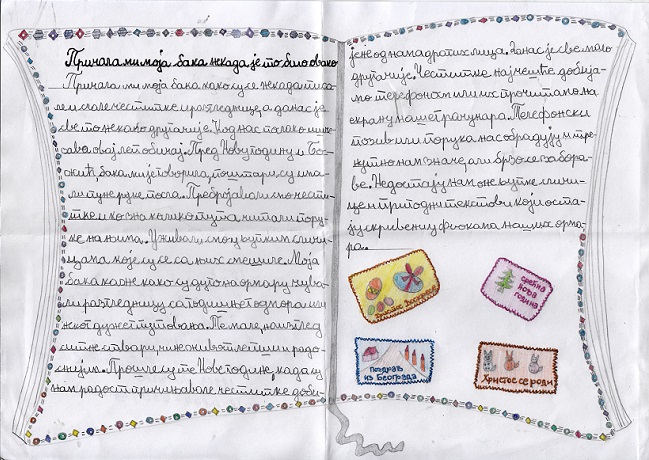 Причала ми моја бака некада је то било овако
Причала ми моја бака како су се некада писа-
ле и слале честитке и разгледнице, а данас је
све то некако другачије. Код нас полако ишче-
зава овај леп обичај. Пред Нову годину и Бо-
жић, бака ми је говорила, поштари су има-
ли пуне руке посла. Пребројавали смо чести-
тке и коначно колико пута читали пору-
ке на њима. Уживали смо у љупким сличи-
цама које су се са њих смешиле. Моја
бака каже како су дуго на ормару чува-
ли разгледницу са годишњег одмора или
неког ужег путовања. Те мале, наизглед
ситне ствари, чине живот лепшим и радо-
снијим. Прошле су те Нове године, када су
нам радост причињавале честитке доби-
јене од нама драгих лица. Данас је све мало
другачије. Честитке најчешће добија-
мо телефоном или их прочитамо на
екрану нашег рачунара. Телефонски
позив или порука нас обрадују и тре-
нутно нам значе, али брзо се забора-
ве. Недостају нам оне љупке сличи-
це и пригодни текстови који оста-
ју скривени у фиокама наших орма-
ра.
срећна
нова
година
поздрав
из Београда
Христос се роди